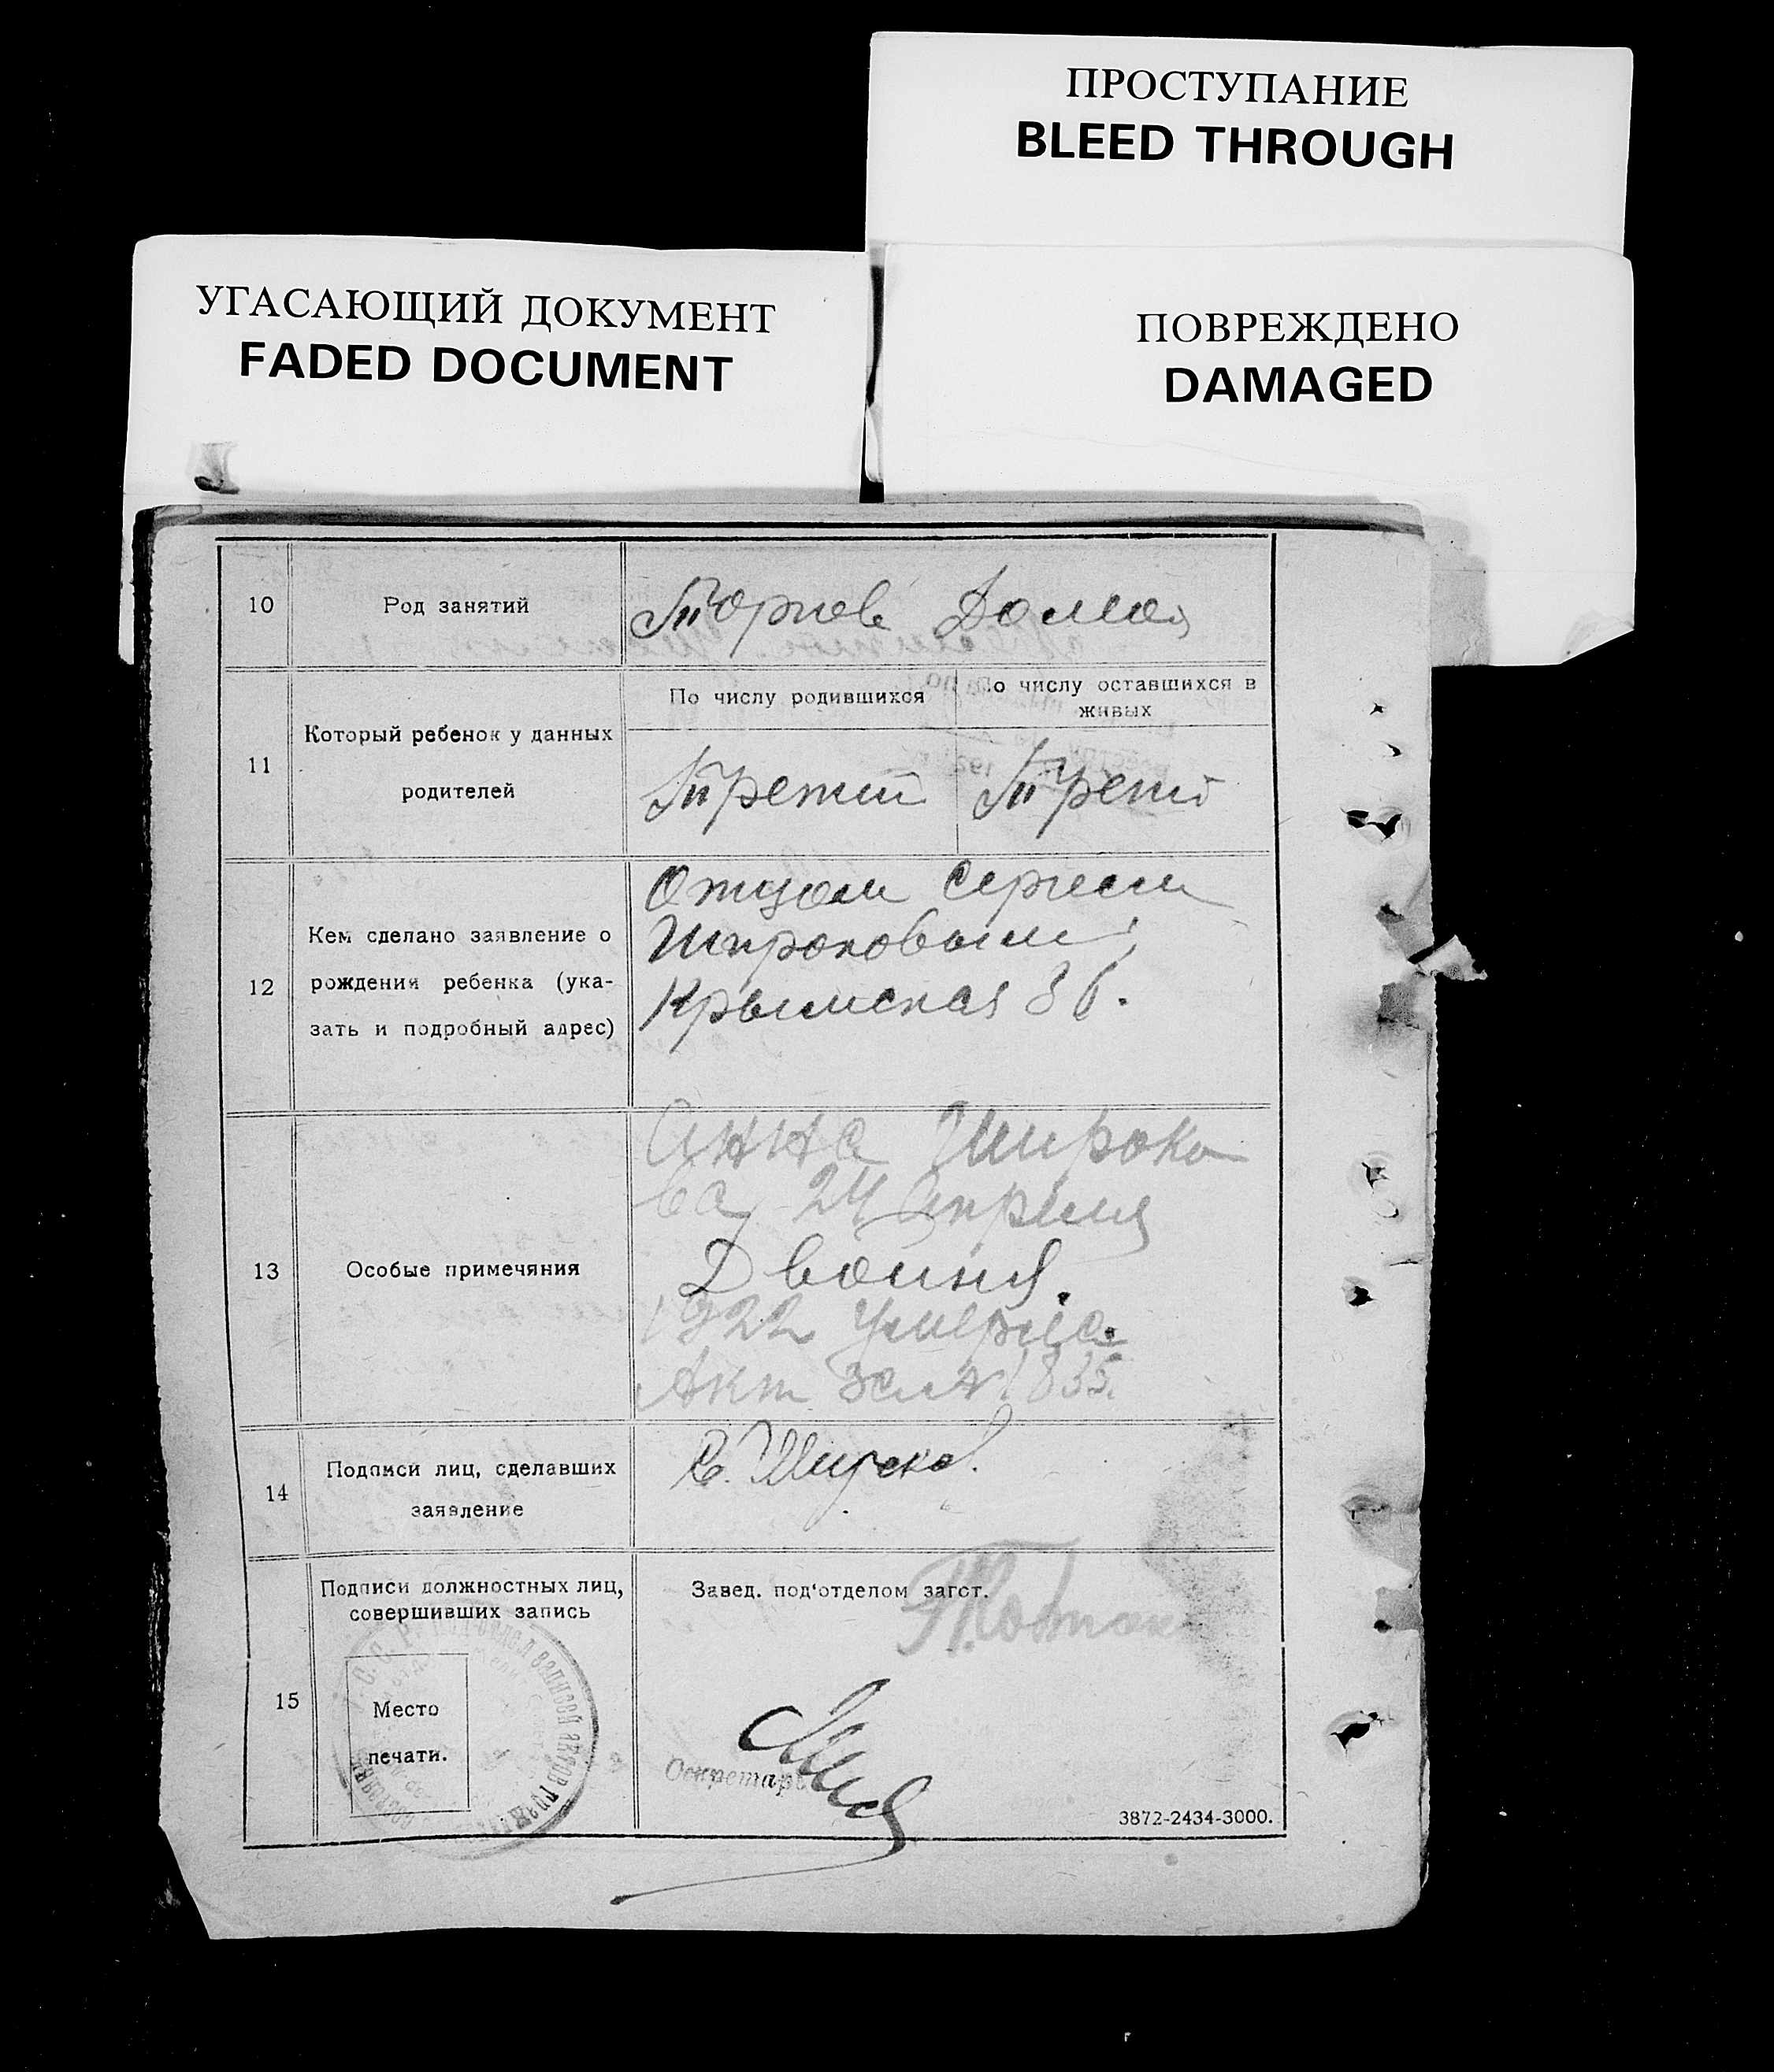 ПРОСТУПАНИЕ
BLEED THROUGH
УГАСАЮЩИЙ ДОКУМЕНТ
FADED DOCUMENT
ПОВРЕЖДЕНО
DAMAGED
10
Род занятий
Торгов Дома
11
Который ребенок у данных
родителей
По числу родившихся
По числу оставшихся в
живых
Третий
Трети
12
Кем сделано заявление о
рождения ребенка (ука-
зать и подробный адрес)
Отцом Сергеем
Широковым
Крымская 36.
13
Особые примечяния
Анна Широко
ва 24 Апреля
Двойня.
1922 умерла
Акт за № 1835.
14
Подписи лиц, сделавших
заявление
С. Широков
15
Подписи должностных лиц,
совершивших запись
Место
печати.
Завед. под'отделом загст.
Секретарь
записи актов граж
3872-2434-3000.